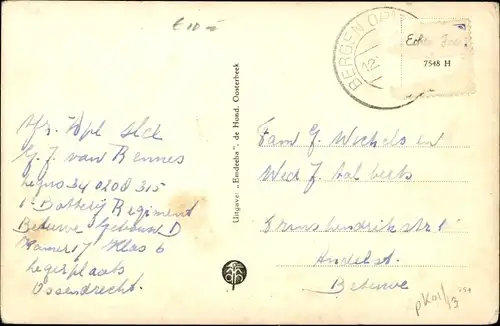 € 10 =
BERGEN OP
12
Echte Foto
7548 H
Uitgave: „Emdeeha" de Hond, Oosterbeek
Afz. Dpl
G. J. van Rennes
Legno 34 0208 315
1e Batterij Regiment
Betuwe Gebouw D
Kamer 17 Klas 6
Legerplaats
Ossendrecht.
Fam G. Wichels en
Wed J.
Prinshendrikstr 1
Andelst.
Betuwe